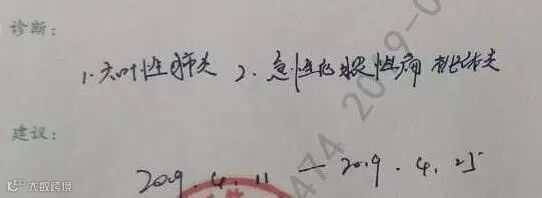 诊断:
1.大叶性肺炎 2.急性化脓性扁桃体炎
建议:
2019.4.11 — 2019.4.25
474 2019-0
大数跨境